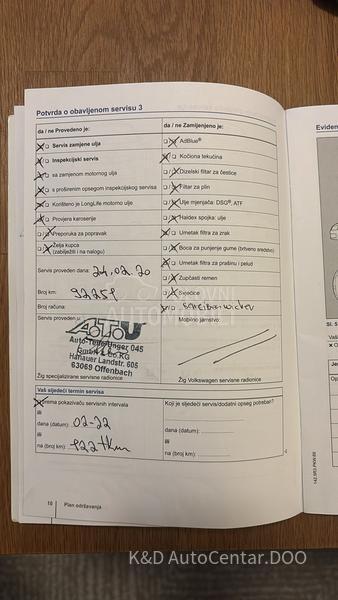 Potvrda o obavljenom servisu 3
da / ne Provedeno je:
Servis zamjene ulja
Inspekcijski servis
sa zamjenom motornog ulja
s proširenim opsegom inspekcijskog servisa
Korišteno je LongLife motorno ulje
Provjera karoserije
Preporuka za popravak
Želja kupca
(zabilježiti i na nalogu)
Servis proveden dana: 24.02.20
Broj km: 92259
Broj računa:
Servis proveden u:
AUTO
045
GmbH & Co.KG
Hanauer Landstr. 605
63069 Offenbach
Žig specijalizirane servisne radionice
da / ne Zamijenjeno je:
AdBlue®
Kočiona tekućina
Dizelski filtar za čestice
Filtar za plin
Ulje mjenjača: DSG®, ATF
Haldex spojka: ulje
Umetak filtra za zrak
Boca za punjenje gume (brtveno sredstvo)
Umetak filtra za prašinu i pelud
Zupčasti remen
Svjećice
Scheibenwischer
Mobilno jamstvo:
Žig Volkswagen servisne radionice
Vaš sljedeći termin servisa
prema pokazivaču servisnih intervala
ili
dana (datum): 02-22
ili
na (broj km): 122 tkm
Koji je sljedeći servis/dodatni opseg potreban?
dana (datum):
ili
na (broj km):
10 | Plan održavanja
Eviden
K&D AutoCentar.DOO